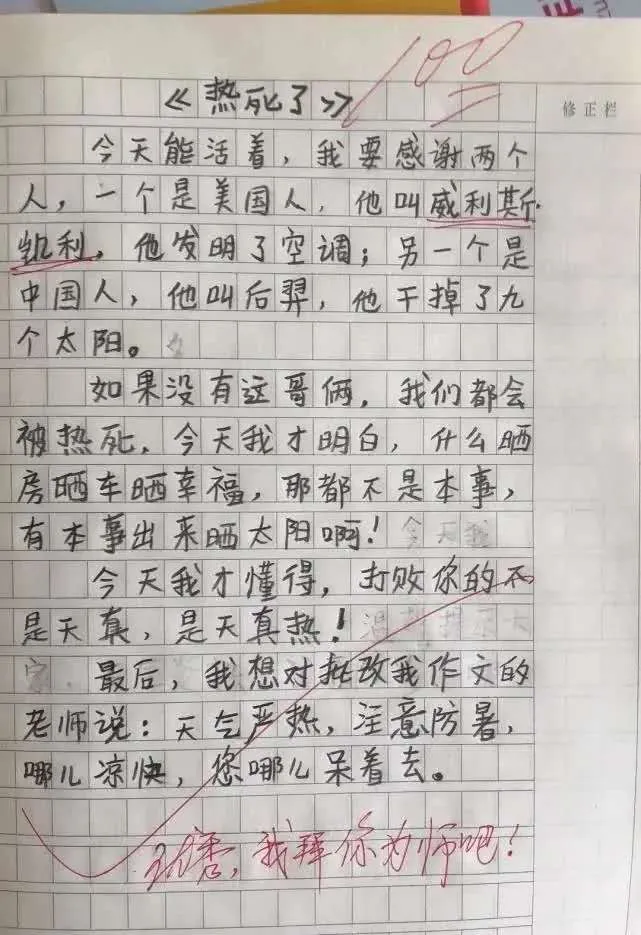 100
修正栏
《热死了》
今天能活着，我要感谢两个
人，一个是美国人，他叫威利斯·
凯利，他发明了空调；另一个是
中国人，他叫后羿，他干掉了九
个太阳。
如果没有这哥俩，我们都会
被热死，今天我才明白，什么晒
房晒车晒幸福，那都不是本事，
有本事出来晒太阳啊！今天我
今天我才懂得，打败你的不
是天真，是天真热！
最后，我想对批改我作文的
老师说：天气严热，注意防暑，
哪儿凉快，您哪儿呆着去。
优秀，我拜你为师吧！